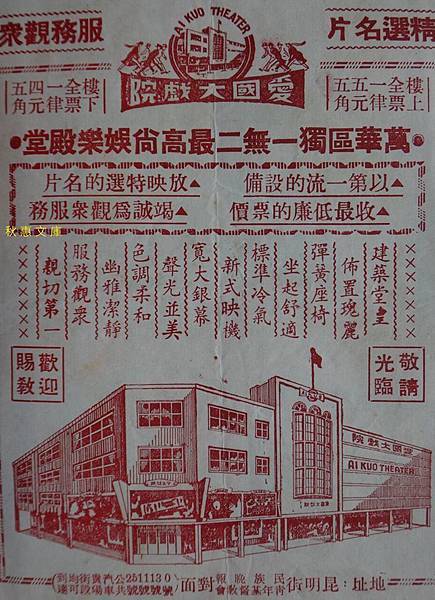 精選名片
服務觀眾
AI KUO THEATER
愛國大戲院
樓上全票一律五元五角
樓下全票一律四元五角
萬華區獨一無二最高尚娛樂殿堂
▲以第一流的設備
▲放映特選的名片
▲收最低廉的票價
▲竭誠爲觀眾服務
秋惠文庫
建築堂皇
佈置瑰麗
彈簧座椅
坐起舒適
標準冷氣
新式映機
寬大銀幕
聲光並美
色調柔和
幽雅潔靜
服務觀眾
親切第一
敬請光臨
歡迎賜教
愛國大戲院
AI KUO THEATER
地址:昆明街民族晚報青年基督教會對面